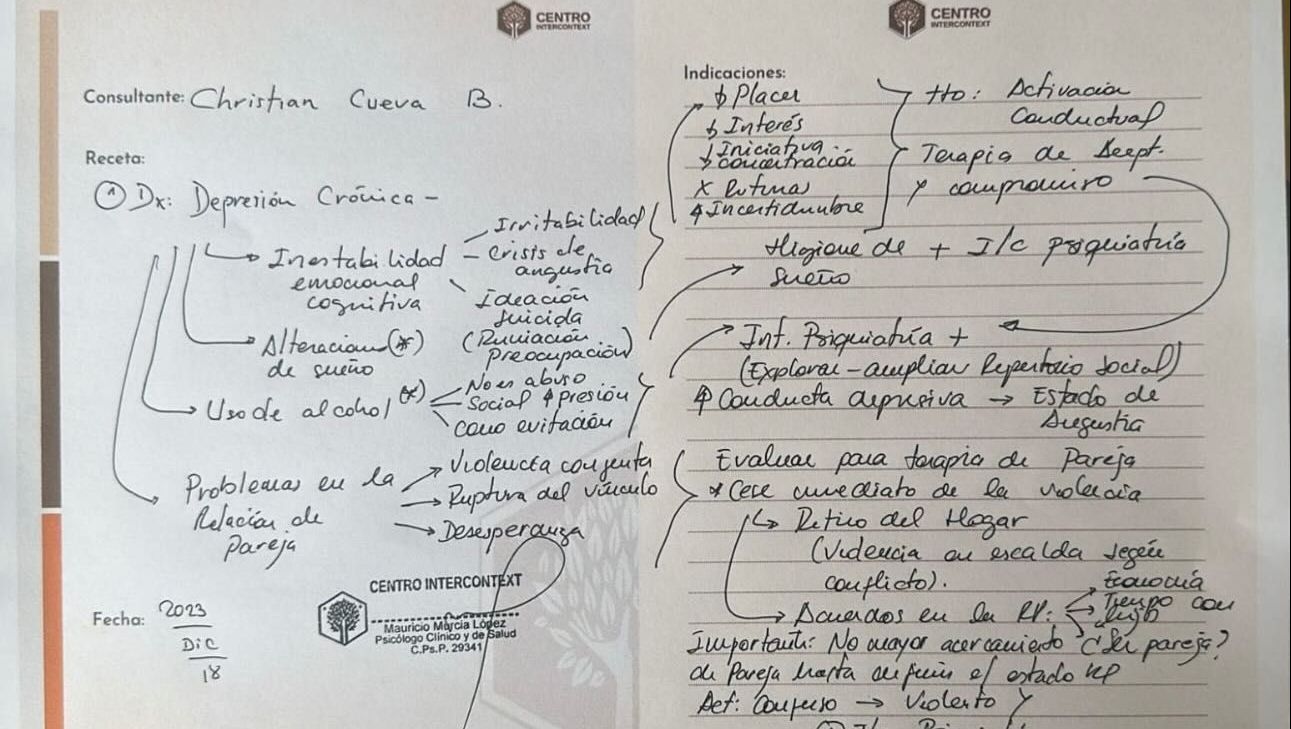 CENTRO
INTERCONTEXT
Consultante: Christian Cueva B.
Receta:
① Dx: Depresión Crónica -
Inestabilidad
emocional
cognitiva
Irritabilidad
Crisis de
angustia
Ideación
suicida
(Rumiación
Preocupación)
Alteracion (*)
de sueño
Uso de alcohol (*)
No es abuso
Social ↑ presión
como evitación
Problemas en la
Relación de
pareja
Violencia conjunta
Ruptura del vínculo
Desesperanza
CENTRO INTERCONTEXT
Mauricio Murcia López
Psicólogo Clínico y de Salud
C.Ps.P. 29341
Fecha: 2023
DiC
18
CENTRO
INTERCONTEXT
Indicaciones:
↓ Placer
↓ Interés
↓ Iniciativa
↓ concentración
X Rutinas
↑ Incertidumbre
tto: Activación
Conductual
Terapia de Acept.
y compromiso
Higiene de + I/c psiquiatría
sueño
Int. Psiquiatría +
(Explorar - ampliar Repertorio Social)
↑ Conducta depresiva → Estado de
Angustia
Evaluar para terapia de Pareja
* Cese inmediato de la violencia
↳ Retiro del Hogar
(Violencia en escalda según
conflicto).
→ Acuerdos en la RP:
Economía
Tiempo con
Importante: No mayor acercamiento
de Pareja hasta definir el estado
¿Ser pareja?
→ Violento y